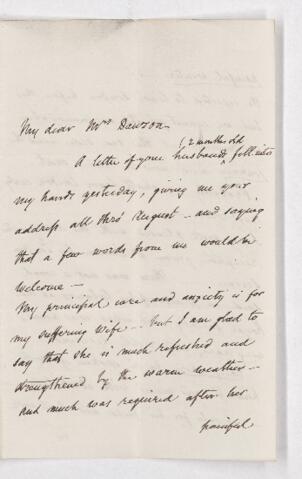 My dear Mrs Dawson
(2 months old
A letter of your husbands fell into
my hands yesterday, giving me your
address all thro' August – and saying
that a few words from me would be
welcome –
My principal care and anxiety is for
my suffering wife – but I am glad to
say that she is much refreshed and
strengthened by the warm weather –
and much was required after her
painful